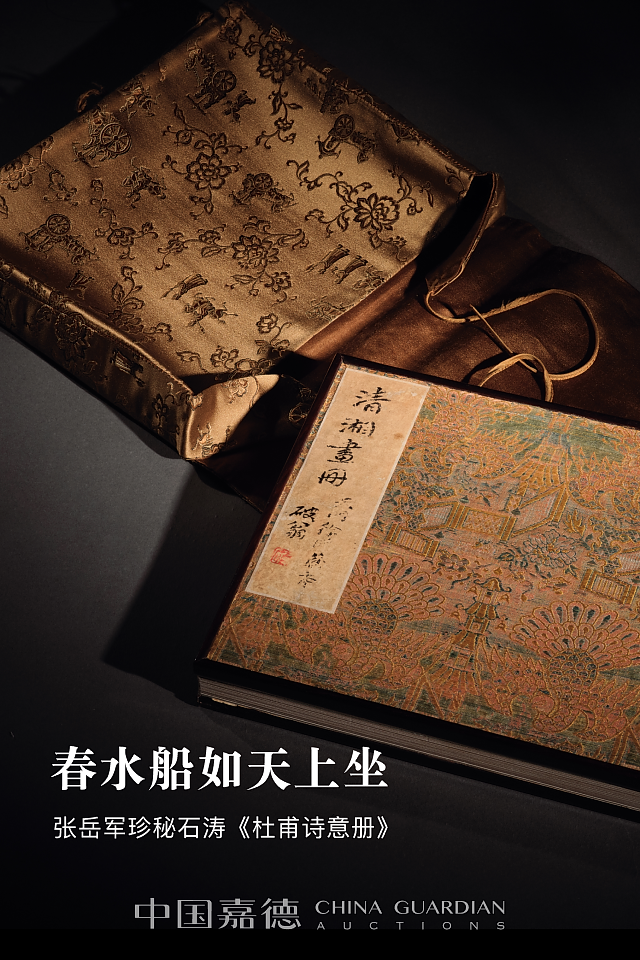 清湘畫冊
破翁
春水船如天上坐
张岳军珍秘石涛《杜甫诗意册》
中国嘉德 CHINA GUARDIAN
AUCTIONS